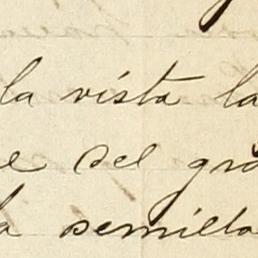 la vista la
e del gra
a semilla